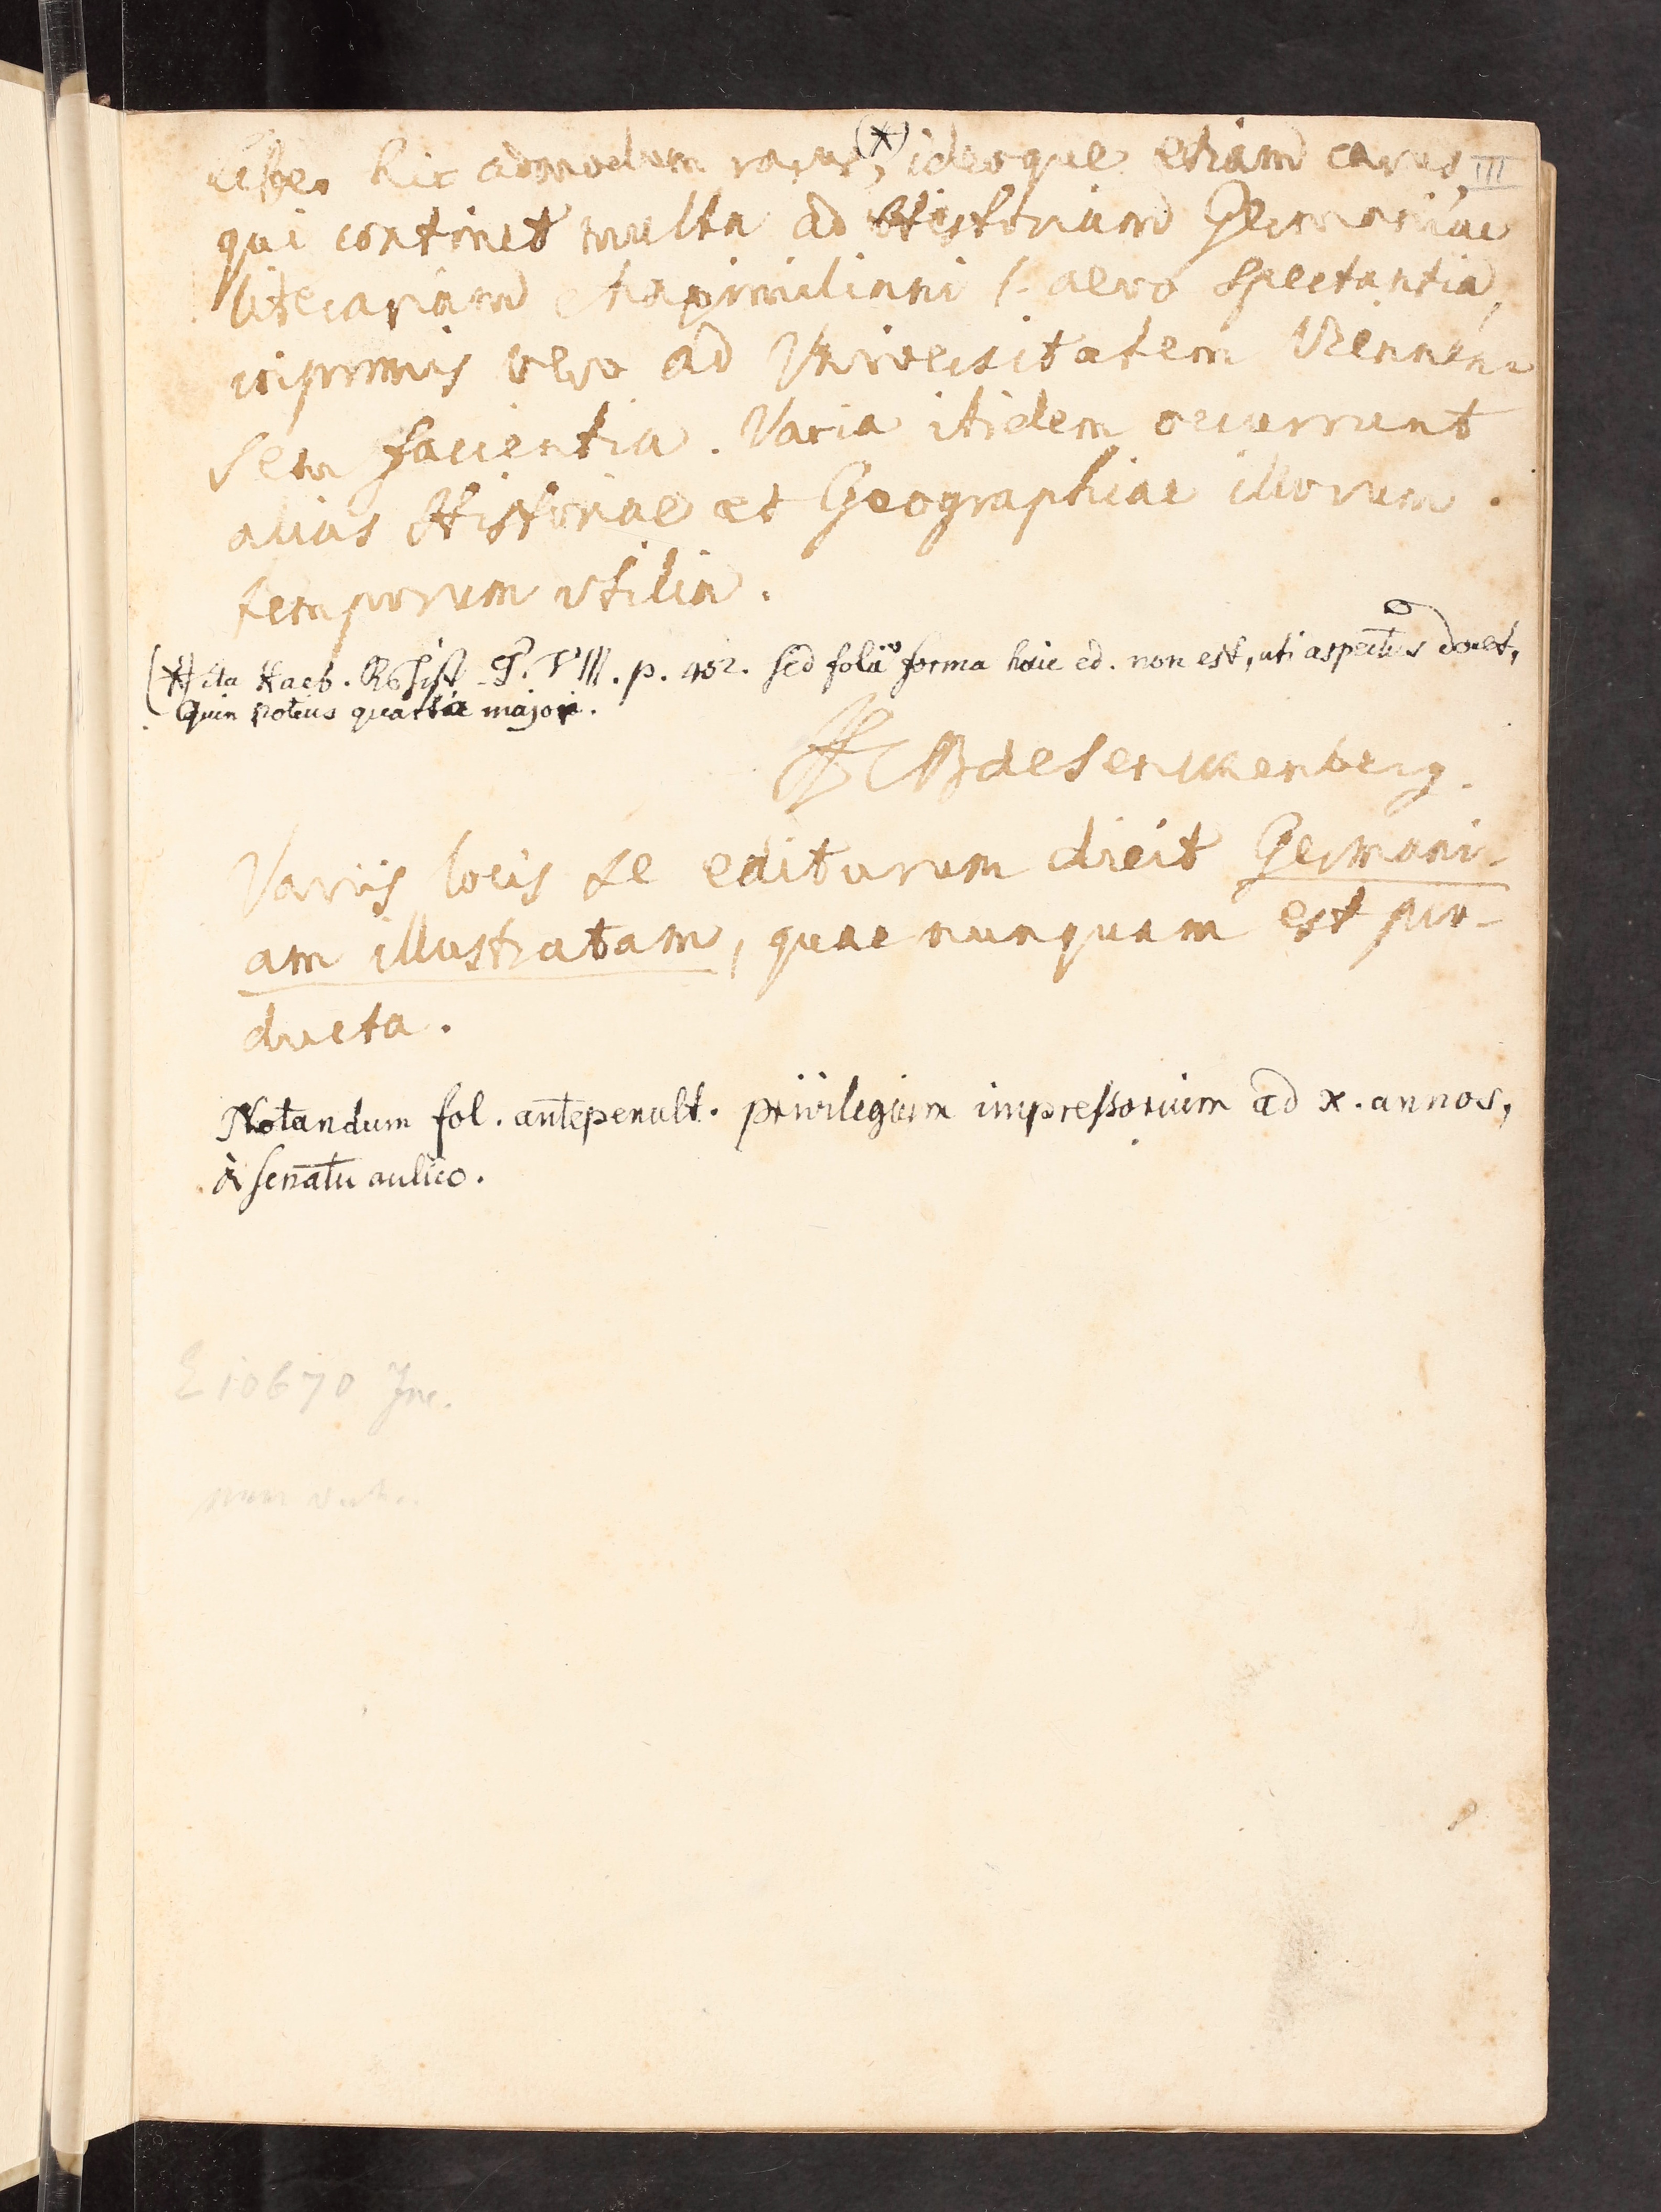 Liber hic admodum rarus (*), ideoque etiam carus, III
qui continet multa ad Historiam Germaniae
literariam Maximiliani I. aevo spectantia,
inprimis vero ad Universitatem Viennen-
sem facientia. Varia itidem occurrunt
alias Historiae et Geographiae illorum
temporum utilia.
(*) ita Haeb. T. VIII. p. 452. sed folii forma huic ed. non est, uti aspectus docet,
Quin potius quartae majori.
de Senckenberg.
Variis locis se editurum dicit Germani-
am illustratam, quae nunquam est pro-
ducta.
Notandum fol. antepenult. privilegium impressorium ad x. annos,
à senatu aulico.
E 10670 Inc.